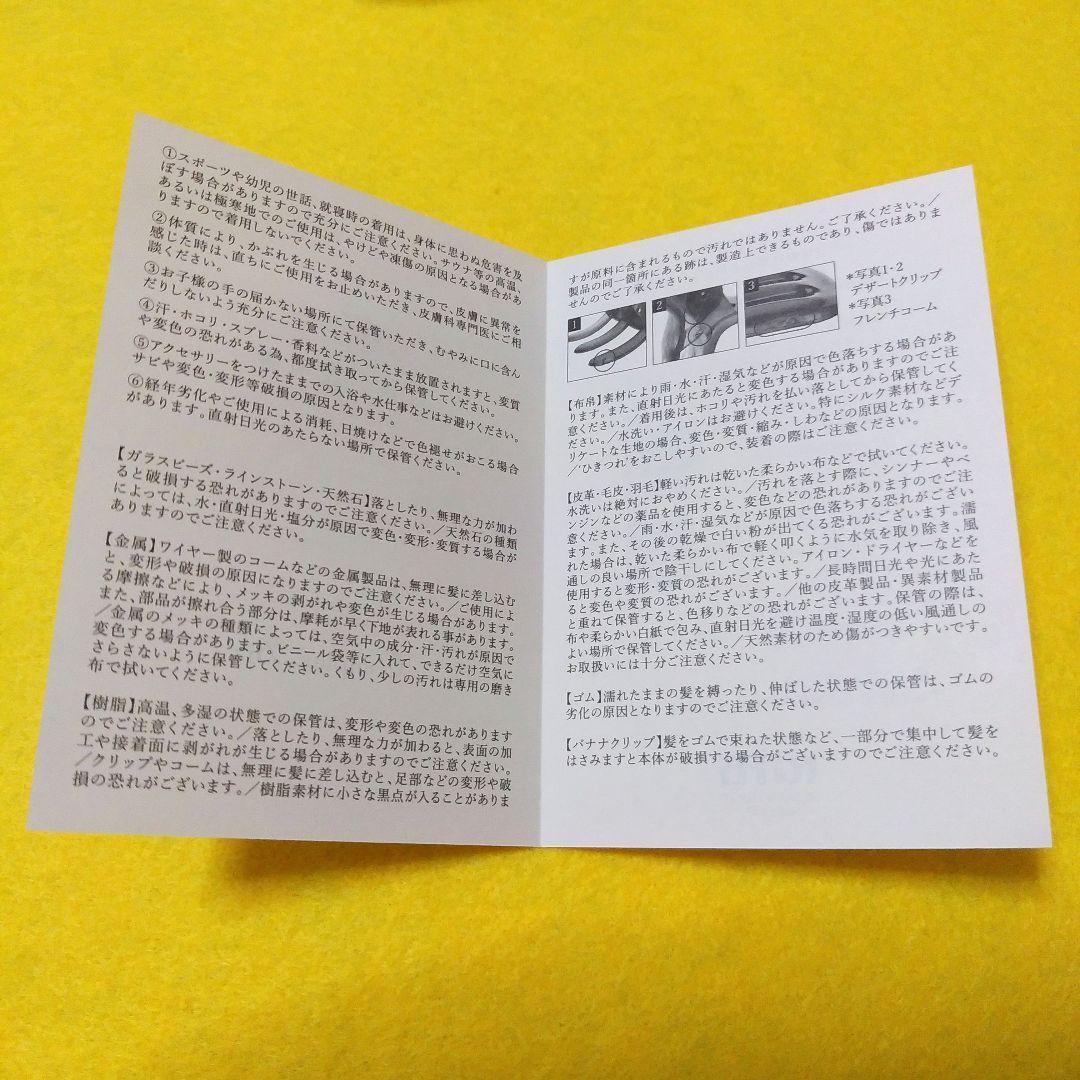 ①スポーツや幼児の世話、就寝時の着用は、身体に思わぬ危害を及
ぼす場合がありますので充分にご注意ください。サウナ等の高温、
あるいは極寒地でのご使用は、やけどや凍傷の原因となる場合があ
りますので着用しないでください。
②体質により、かぶれを生じる場合がありますので、皮膚に異常を
感じた時は、直ちにご使用をお止めいただき、皮膚科専門医にご相
談ください。
③お子様の手の届かない場所にて保管いただき、むやみに口に含ん
だりしないよう充分にご注意ください。
④汗・ホコリ・スプレー・香料などがついたまま放置されますと、変質
や変色の恐れがある為、都度拭き取ってから保管してください。
⑤アクセサリーをつけたままでの入浴や水仕事などはお避けください。
サビや変色・変形等破損の原因となります。
⑥経年劣化やご使用による消耗、日焼けなどで色褪せがおこる場合
があります。直射日光のあたらない場所で保管ください。
【ガラスビーズ・ラインストーン・天然石】落としたり、無理な力が加わ
ると破損する恐れがありますのでご注意ください。／天然石の種類
によっては、水・直射日光・塩分が原因で変色・変形・変質する場合が
ありますのでご注意ください。
【金属】ワイヤー製のコームなどの金属製品は、無理に髪に差し込む
と、変形や破損の原因になりますのでご注意ください。／ご使用によ
る摩擦などにより、メッキの剥がれや変色が生じる場合があります。
また、部品が擦れ合う部分は、摩耗が早く下地が表れる事があります。
／金属のメッキの種類によっては、空気中の成分・汗・汚れが原因で
変色する場合があります。ビニール袋等に入れて、できるだけ空気に
さらさないように保管してください。くもり、少しの汚れは専用の磨き
布で拭いてください。
【樹脂】高温、多湿の状態での保管は、変形や変色の恐れがあります
のでご注意ください。／落としたり、無理な力が加わると、表面の加
工や接着面に剥がれが生じる場合がありますのでご注意ください。
／クリップやコームは、無理に髪に差し込むと、足部などの変形や破
損の恐れがございます。／樹脂素材に小さな黒点が入ることがありま
すが原料に含まれるもので汚れではありません。ご了承ください。／
製品の同一箇所にある跡は、製造上できるものであり、傷ではありま
せんのでご了承ください。
1
2
3
*写真1・2
デザートクリップ
*写真3
フレンチコーム
【布帛】素材により雨・水・汗・湿気などが原因で色落ちする場合があ
ります。また、直射日光にあたると変色する場合がありますのでご注
意ください。／着用後は、ホコリや汚れを払い落としてから保管してく
ださい。／水洗い・アイロンはお避けください。特にシルク素材などデ
リケートな生地の場合、変色・変質・縮み・しわなどの原因となります。
／‘ひきつれ’をおこしやすいので、装着の際はご注意ください。
【皮革・毛皮・羽毛】軽い汚れは乾いた柔らかい布などで拭いてください。
水洗いは絶対におやめください。／汚れを落とす際に、シンナーやベ
ンジンなどの薬品を使用すると、変色などの恐れがありますのでご注
意ください。／雨・水・汗・湿気などが原因で色落ちする恐れがござい
ます。また、その後の乾燥で白い粉が出てくる恐れがございます。濡
れた場合は、乾いた柔らかい布で軽く叩くように水気を取り除き、風
通しの良い場所で陰干しにしてください。アイロン・ドライヤーなどを
使用すると変形・変質の恐れがございます。／長時間日光や光にあた
ると変色や変質の恐れがございます。／他の皮革製品・異素材製品
と重ねて保管すると、色移りなどの恐れがございます。保管の際は、
布や柔らかい白紙で包み、直射日光を避け温度・湿度の低い風通しの
よい場所で保管してください。／天然素材のため傷がつきやすいです。
お取扱いには十分ご注意ください。
【ゴム】濡れたままの髪を縛ったり、伸ばした状態での保管は、ゴムの
劣化の原因となりますのでご注意ください。
【バナナクリップ】髪をゴムで束ねた状態など、一部分で集中して髪を
はさみますと本体が破損する場合がございますのでご注意ください。